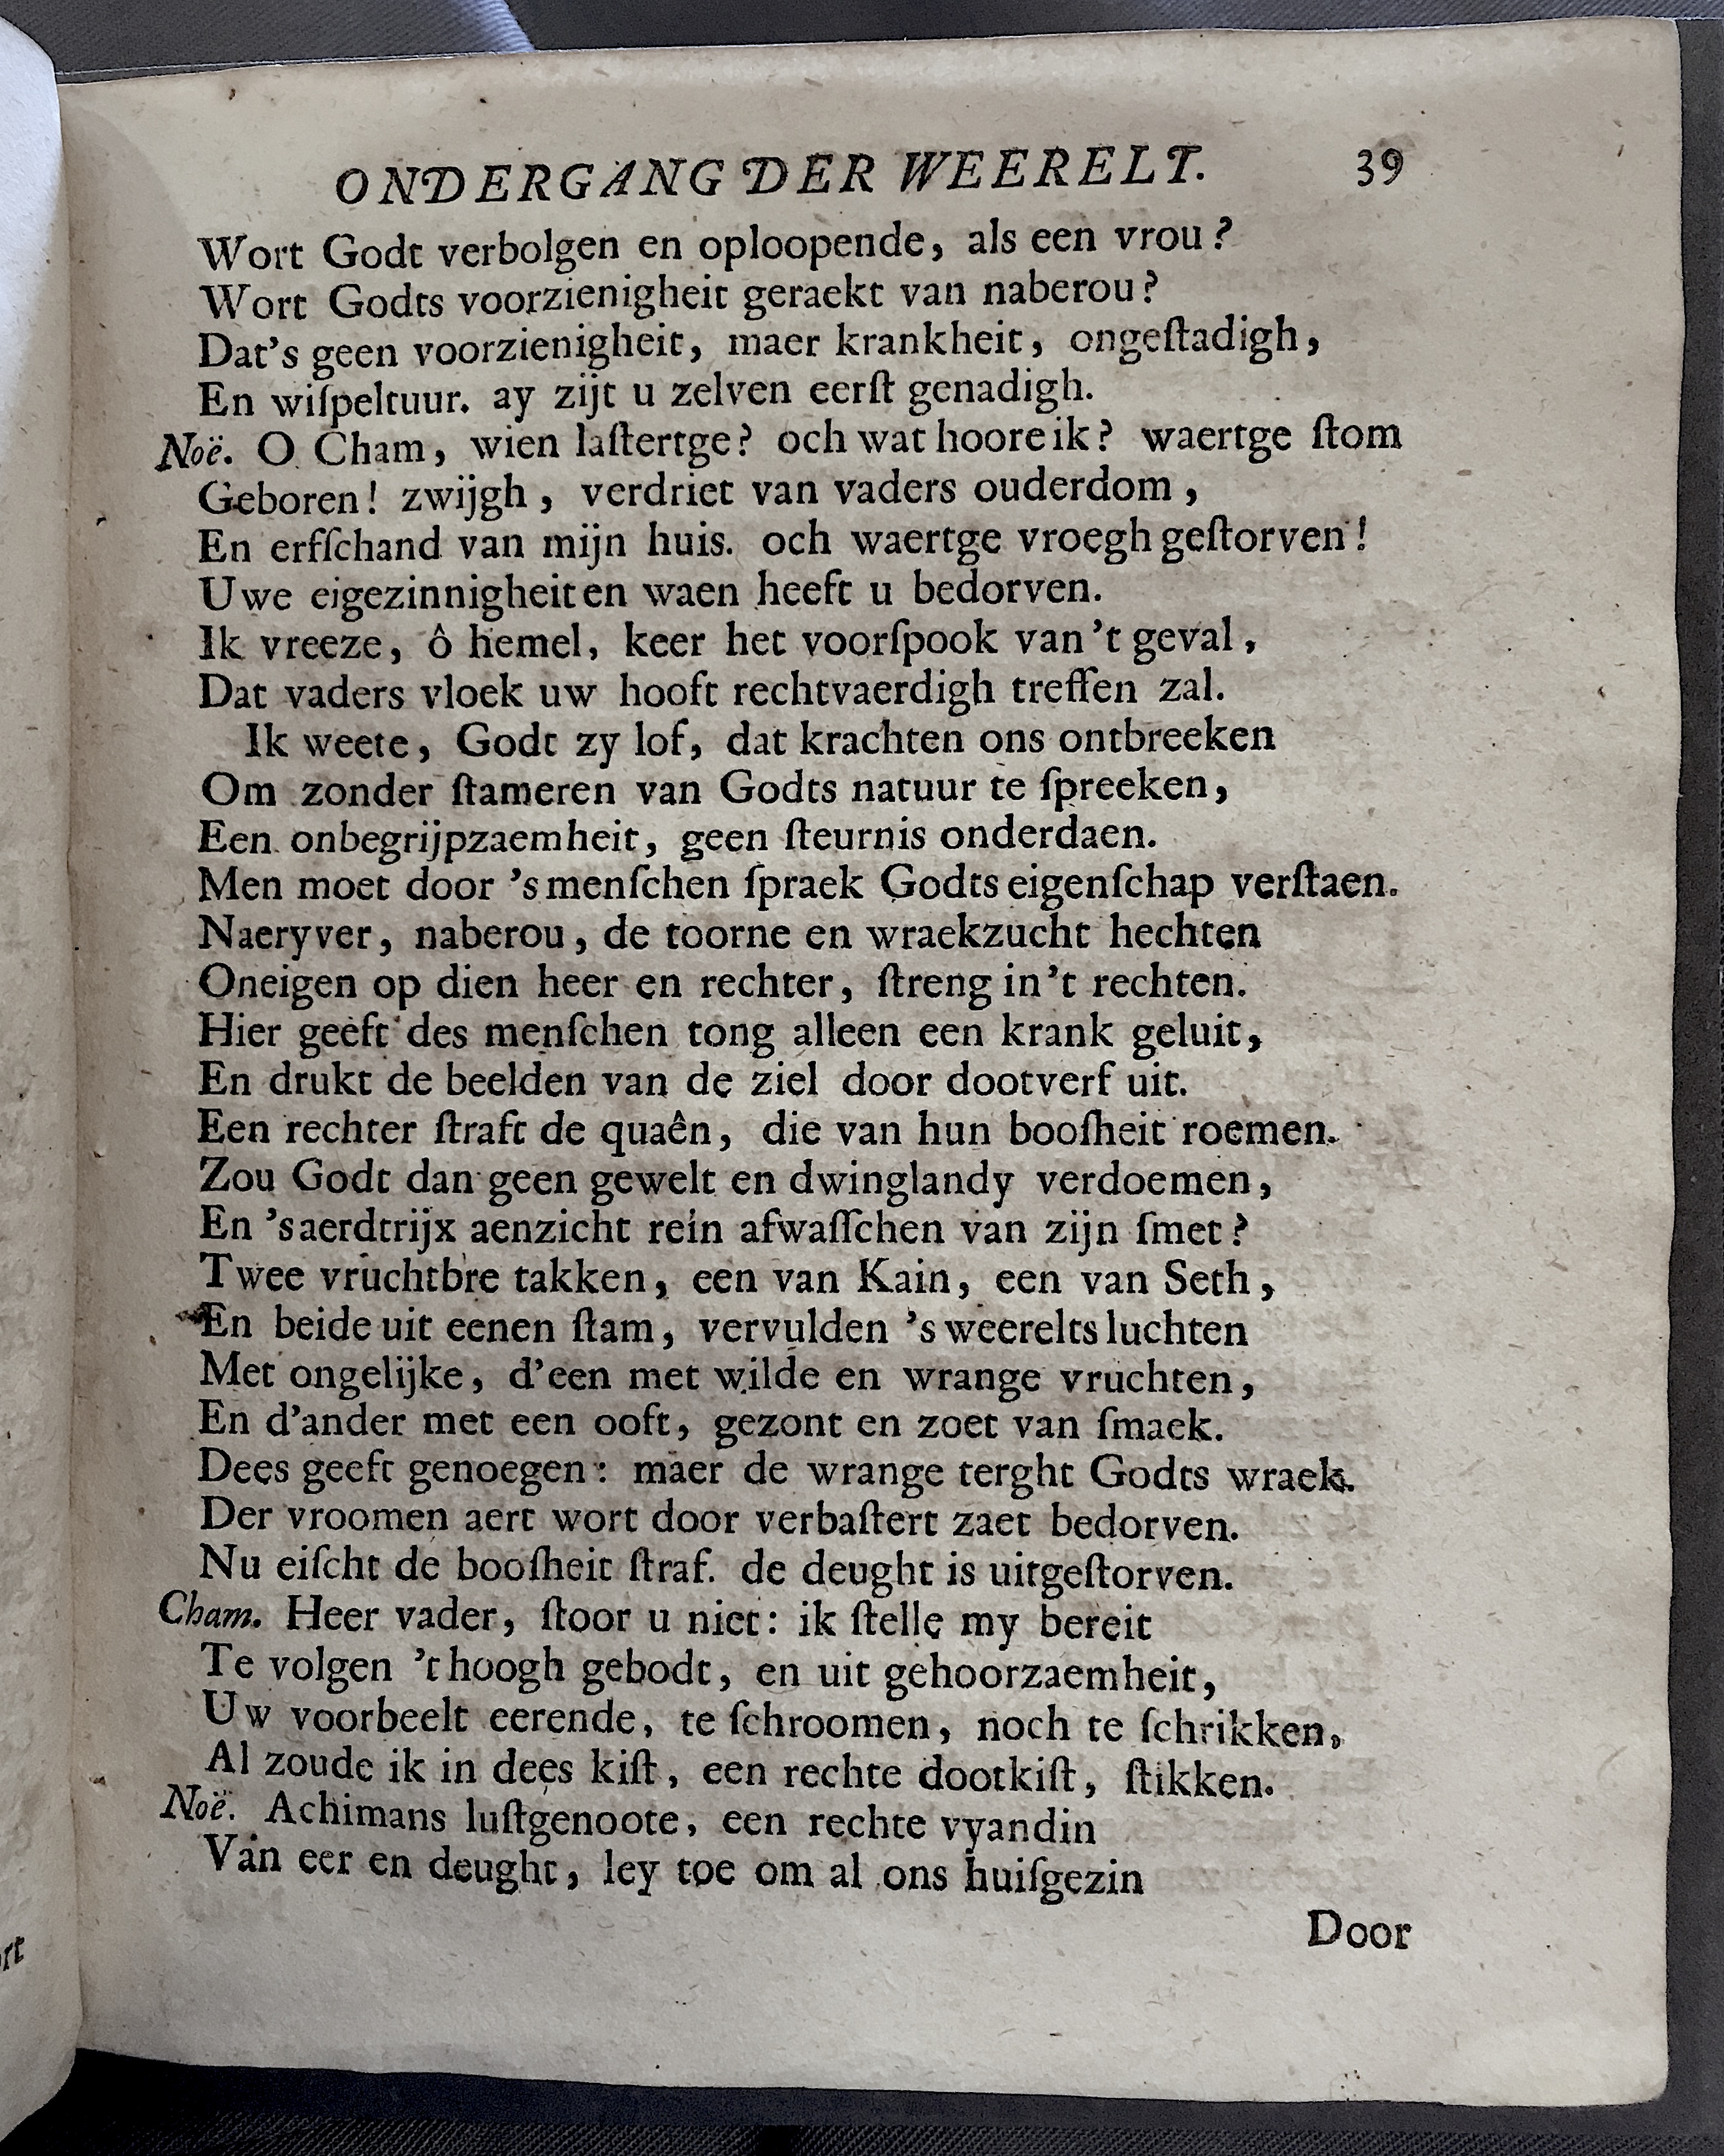 ONDERGANG DER WEERELT. 39
Wort Godt verbolgen en oploopende, als een vrou?
Wort Godts voorzienigheit geraekt van naberou?
Dat's geen voorzienigheit, maer krankheit, ongeſtadigh,
En wiſpeltuur. ay zijt u zelven eerſt genadigh.
Noë. O Cham, wien laſtertge? och wat hoore ik? waertge ſtom
Geboren! zwijgh, verdriet van vaders ouderdom,
En erfſchand van mijn huis. och waertge vroegh geſtorven!
Uwe eigezinnigheit en waen heeft u bedorven.
Ik vreeze, ô hemel, keer het voorſpook van 't geval,
Dat vaders vloek uw hooft rechtvaerdigh treffen zal.
Ik weete, Godt zy lof, dat krachten ons ontbreeken
Om zonder ſtameren van Godts natuur te ſpreeken,
Een onbegrijpzaemheit, geen ſteurnis onderdaen.
Men moet door 's menſchen ſpraek Godts eigenſchap verſtaen.
Naeryver, naberou, de toorne en wraekzucht hechten
Oneigen op dien heer en rechter, ſtreng in 't rechten.
Hier geeft des menſchen tong alleen een krank geluit,
En drukt de beelden van de ziel door dootverf uit.
Een rechter ſtraft de quaên, die van hun boosheit roemen.
Zou Godt dan geen gewelt en dwinglandy verdoemen,
En 's aerdtrijx aenzicht rein afwaſſchen van zijn ſmet?
Twee vruchtbre takken, een van Kain, een van Seth,
En beide uit eenen ſtam, vervulden 's weerelts luchten
Met ongelijke, d'een met wilde en wrange vruchten,
En d'ander met een ooft, gezont en zoet van ſmaek.
Dees geeft genoegen: maer de wrange terght Godts wraek.
Der vroomen aert wort door verbaſtert zaet bedorven.
Nu eiſcht de booſheit ſtraf. de deught is uitgeſtorven.
Cham. Heer vader, ſtoor u niet: ik ſtelle my bereit
Te volgen 't hoogh gebodt, en uit gehoorzaemheit,
Uw voorbeelt eerende, te ſchroomen, noch te ſchrikken,
Al zoude ik in dees kiſt, een rechte dootkiſt, ſtikken.
Noë. Achimans luſtgenoote, een rechte vyandin
Van eer en deught, ley toe om al ons huiſgezin
Door